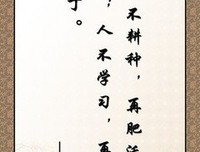 不耕种，再肥
；人不学习，再
丁。